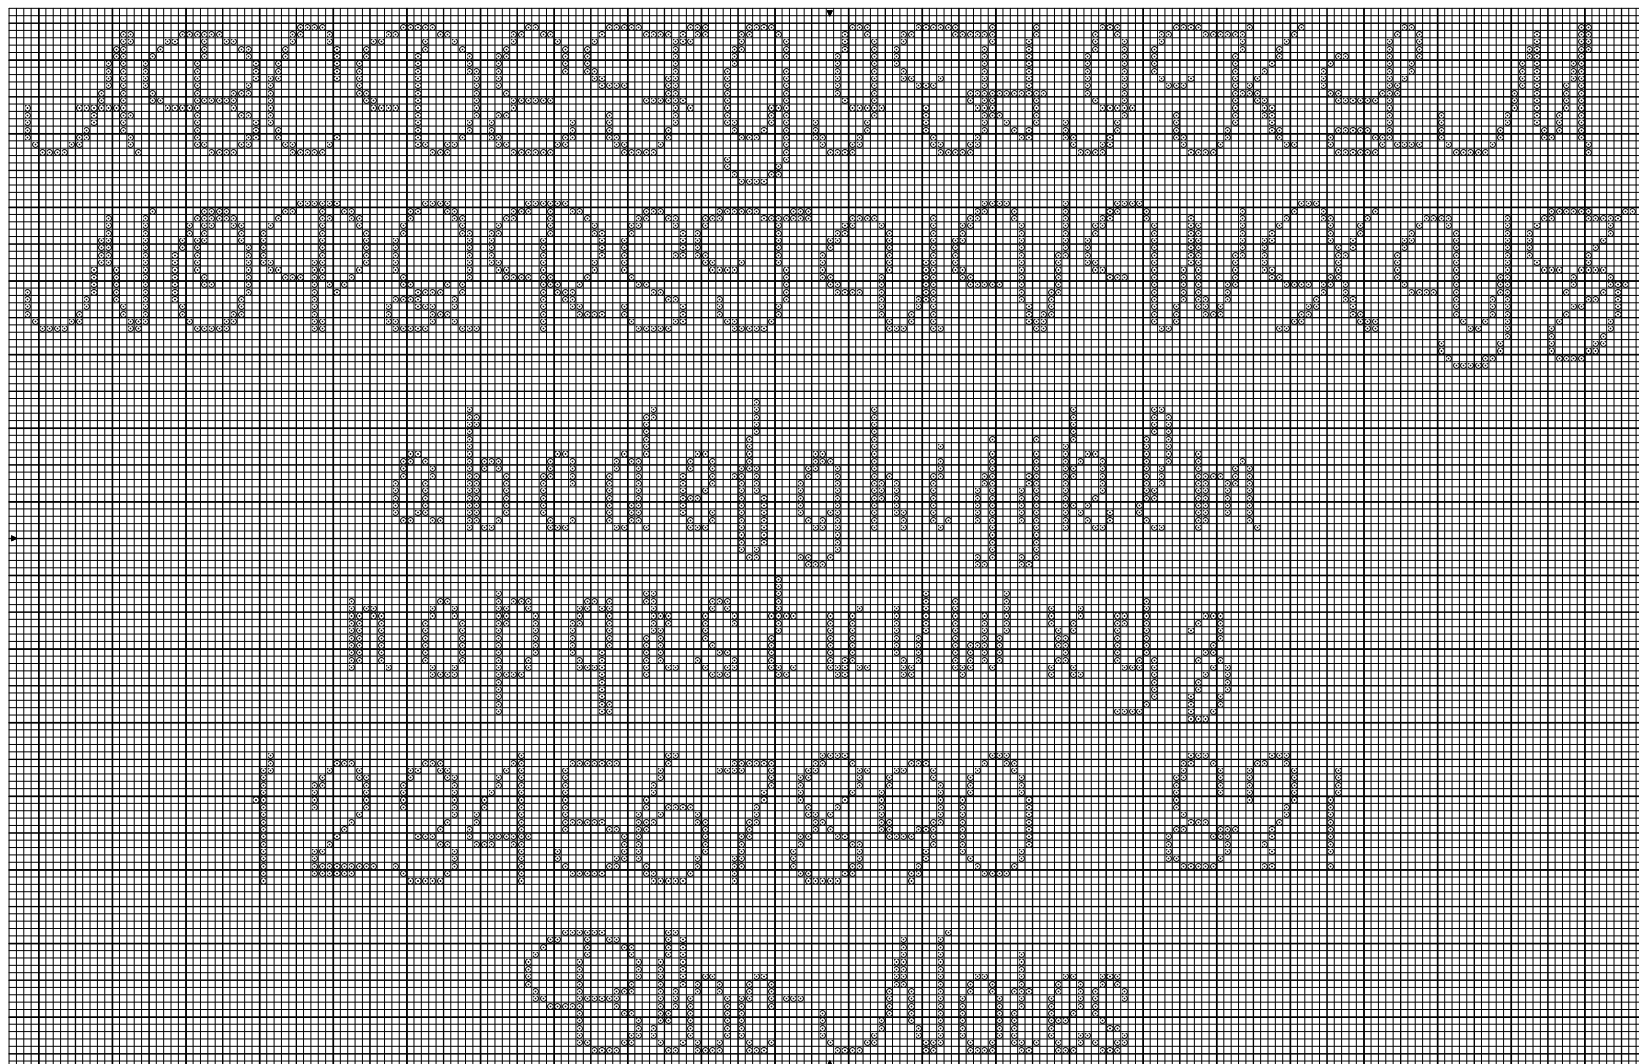 A B C D E F G H I J K L M
N O P Q R S T U V W X Y Z
a b c d e f g h i j k l m
n o p q r s t u v w x y z
1 2 3 4 5 6 7 8 9 0 & ? !